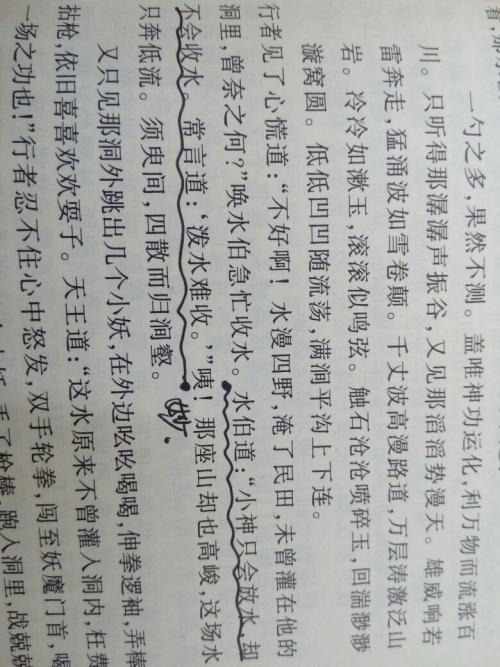 一勺之多,果然不测。盖唯神功运化,利万物而流涨百
川。只听得那潺潺声振谷,又见那滔滔势漫天。雄威响若
雷奔走,猛涌波如雪卷颠。千丈波高漫路道,万层涛激泛山
岩。冷冷如漱玉,滚滚似鸣弦。触石沧沧喷碎玉,回湍渺渺
漩窝圆。低低凹凹随流荡,满涧平沟上下连。
行者见了心慌道:“不好啊!水漫四野,淹了民田,未曾灌在他的
洞里,曾奈之何?”唤水伯急忙收水。水伯道:“小神只会放水,却
不会收水。常言道:‘泼水难收。’”咦!那座山却也高峻,这场水
只奔低流。须臾间,四散而归涧壑。
妙.
又只见那洞外跳出几个小妖,在外边吆吆喝喝,伸拳逻袖,弄棒
拈枪,依旧喜喜欢欢耍子。天王道:“这水原来不曾灌入洞内,枉费
一场之功也!”行者忍不住心中怒发,双手轮拳,闯至妖魔门首,喝
丢了枪棒,跑入洞里,战兢兢